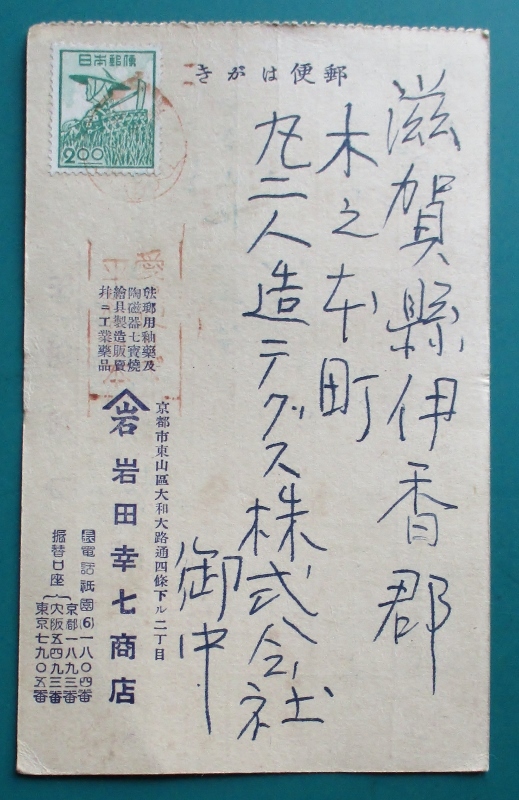 郵便はがき
日本郵便
2.00
滋賀縣伊香郡
木之本町
丸二人造テグス株式会社
御中
琺瑯用釉藥及
陶磁器七寳燒
繪具製造販賣
幷ニ工業藥品
京都市東山區大和大路通四條下ル二丁目
岩 岩田幸七商店
電話祇園(6)一八〇四番
振替口座
京都一八九三番
大阪五四九三番
東京七九〇五番